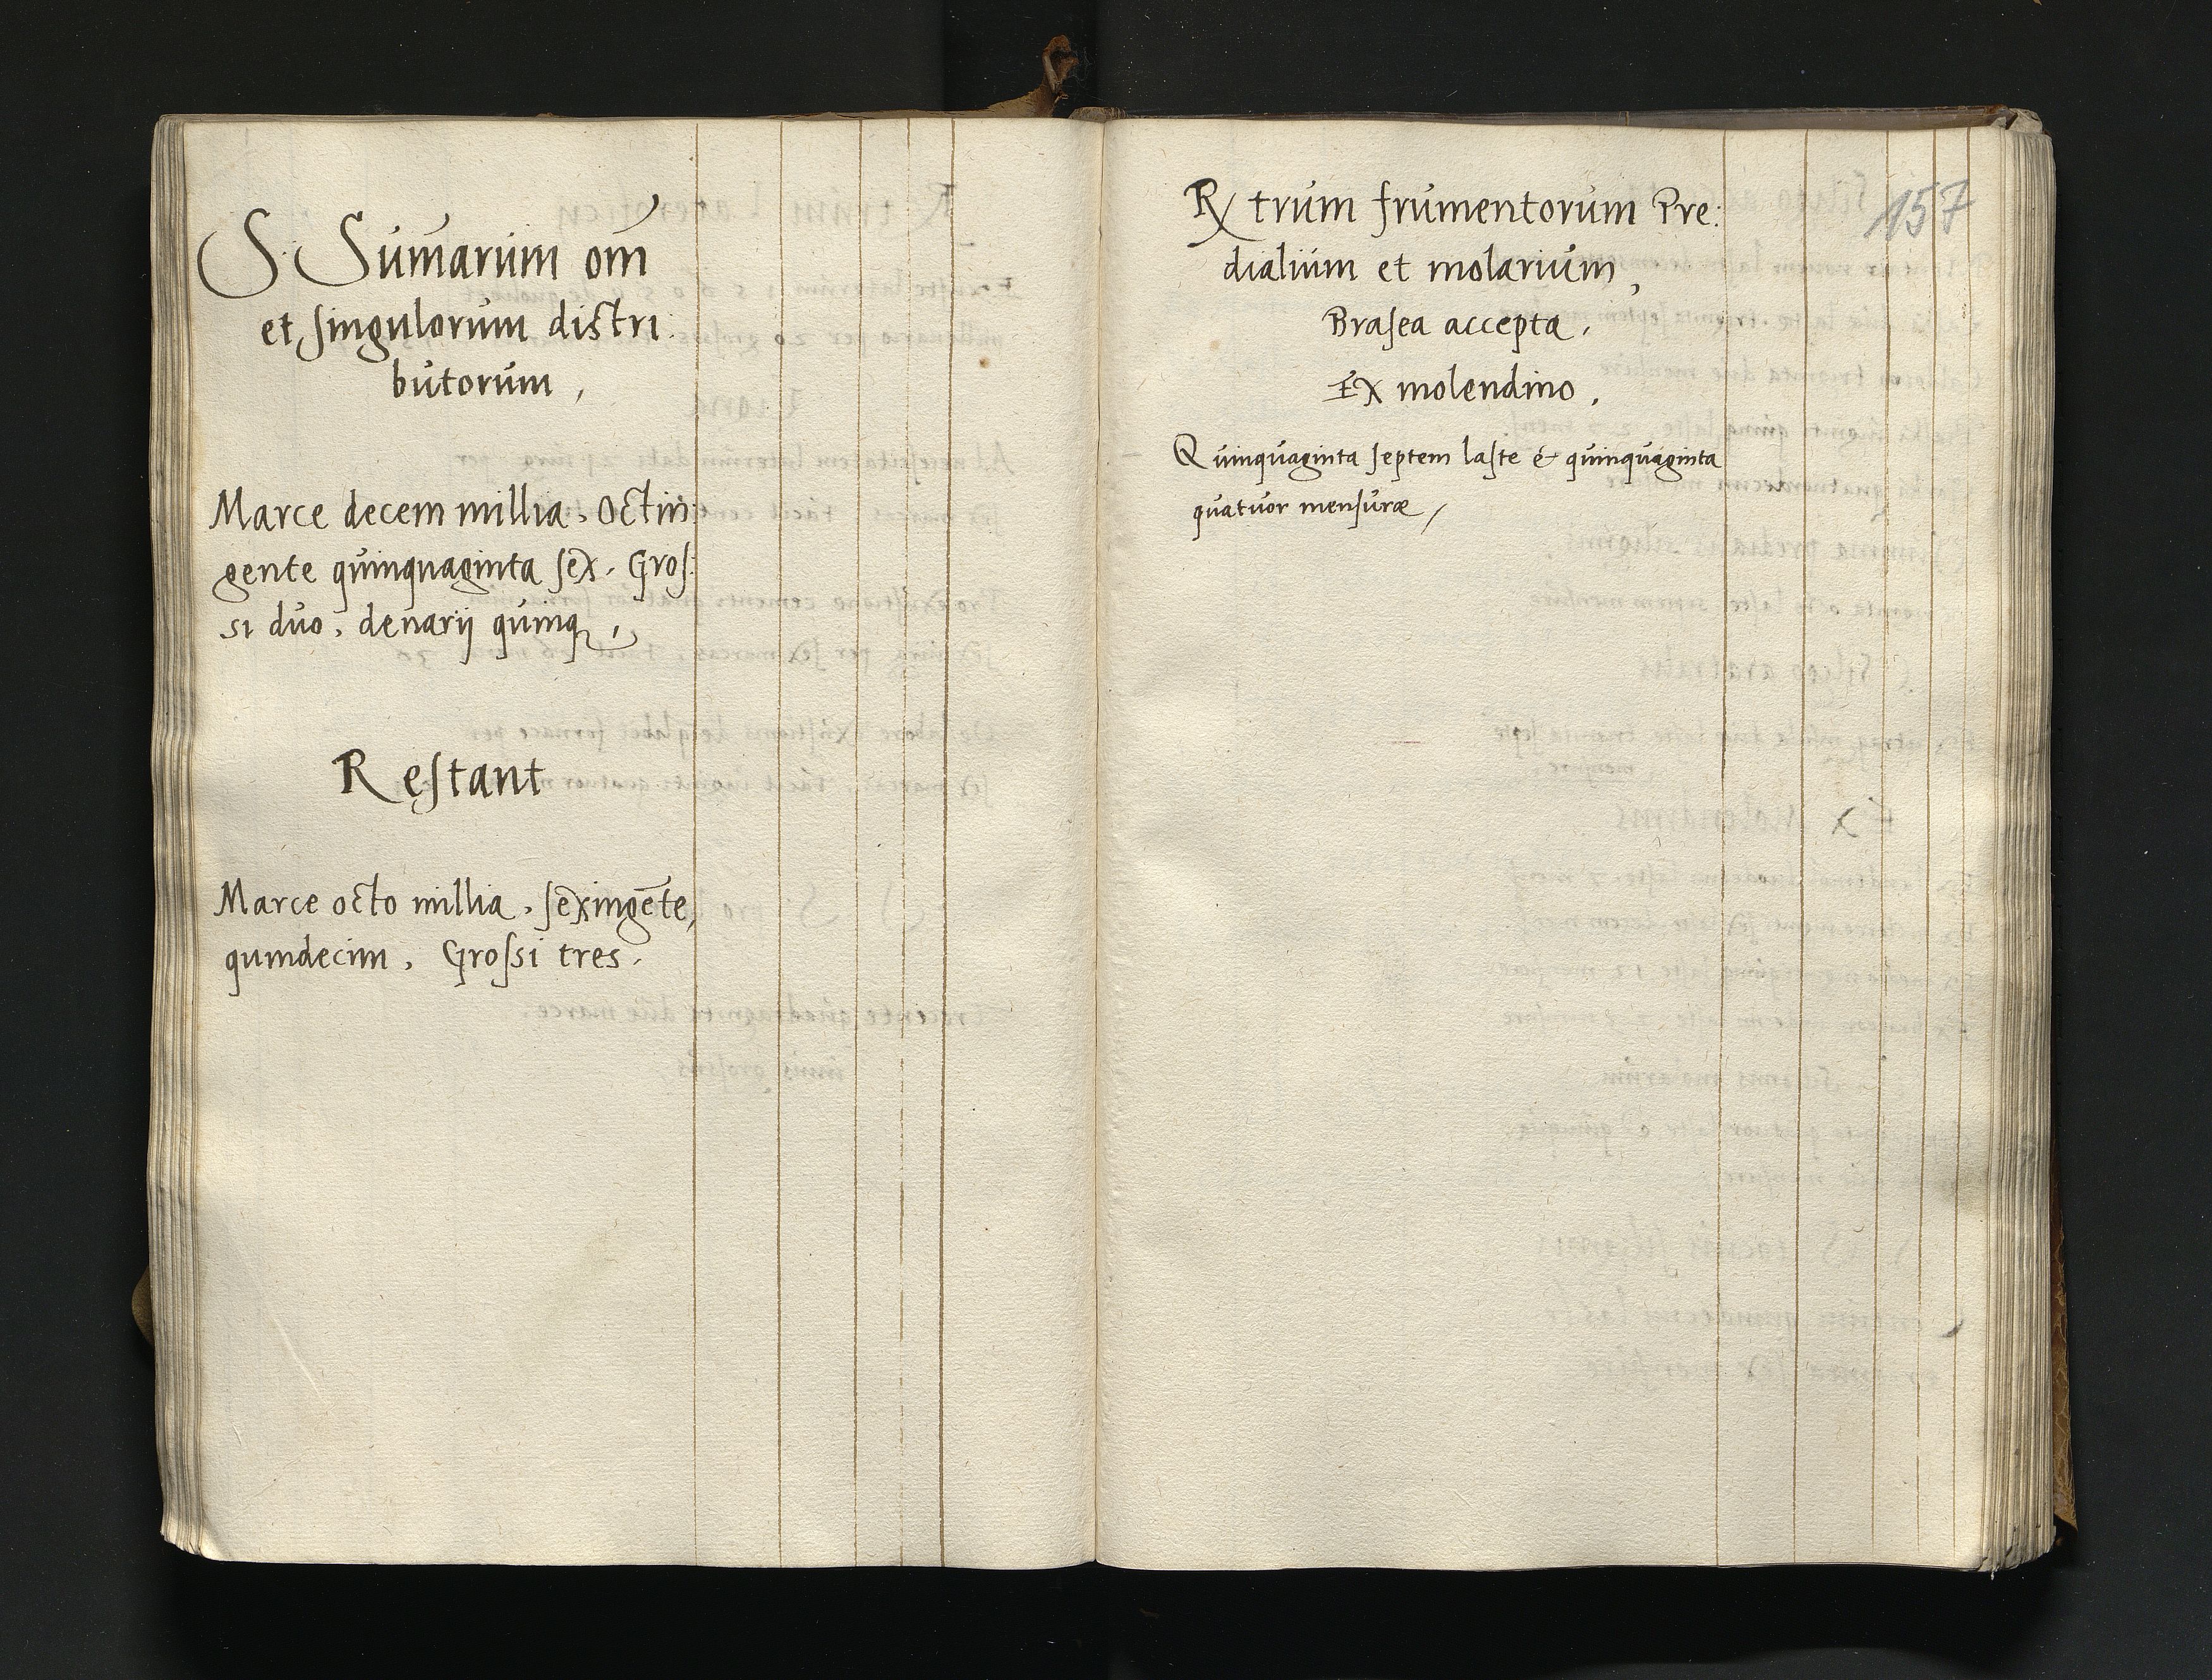 S Sumarium om̅
et singulorum distri:
butorum,
Marce decem millia, Octin:
gente quinquaginta sex. Gros:
si duo, denarij quinq,
Restant
Marce octo millia, sexinge̅te,
quindecim, Grossi tres.
157
Rx trum frumentorum Pre:
dialium et molarium,
Brasea accepta.
Ex molendino.
Quinquaginta septem laste & quinquaginta
quatuor mensuræ,